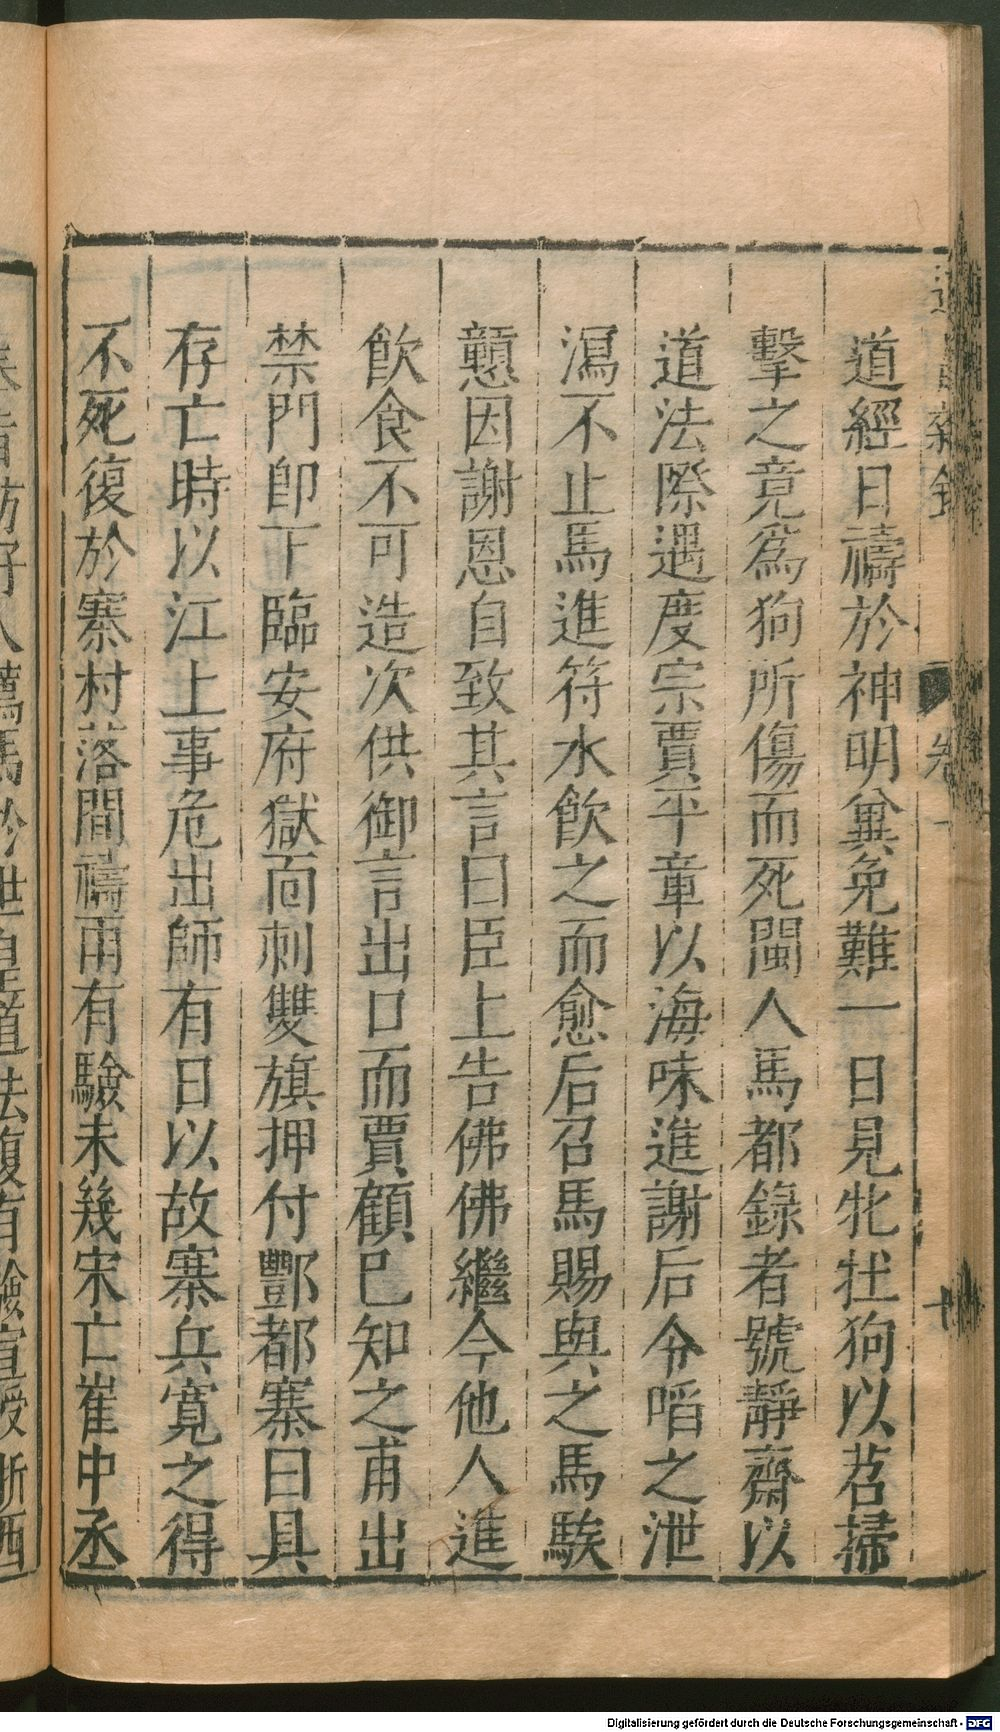 道經日禱於神明冀免難一日見牝牡狗以苕掃
擊之竟爲狗所傷而死閩人馬都錄者號靜齋以
道法際遇度宗賈平章以海味進謝后令啗之泄
瀉不止馬進符水飲之而愈后召馬賜與之馬騃
戇因謝恩自致其言曰臣上告佛佛繼今他人進
飲食不可造次供御言出口而賈顧已知之甫出
禁門卽下臨安府獄面刺雙旗押付酆都寨曰具
存亡時以江上事危出師有日以故寨兵寬之得
不死復於寨村落間禱雨有驗未幾宋亡崔中丞
Digitalisierung gefördert durch die Deutsche Forschungsgemeinschaft - DFG